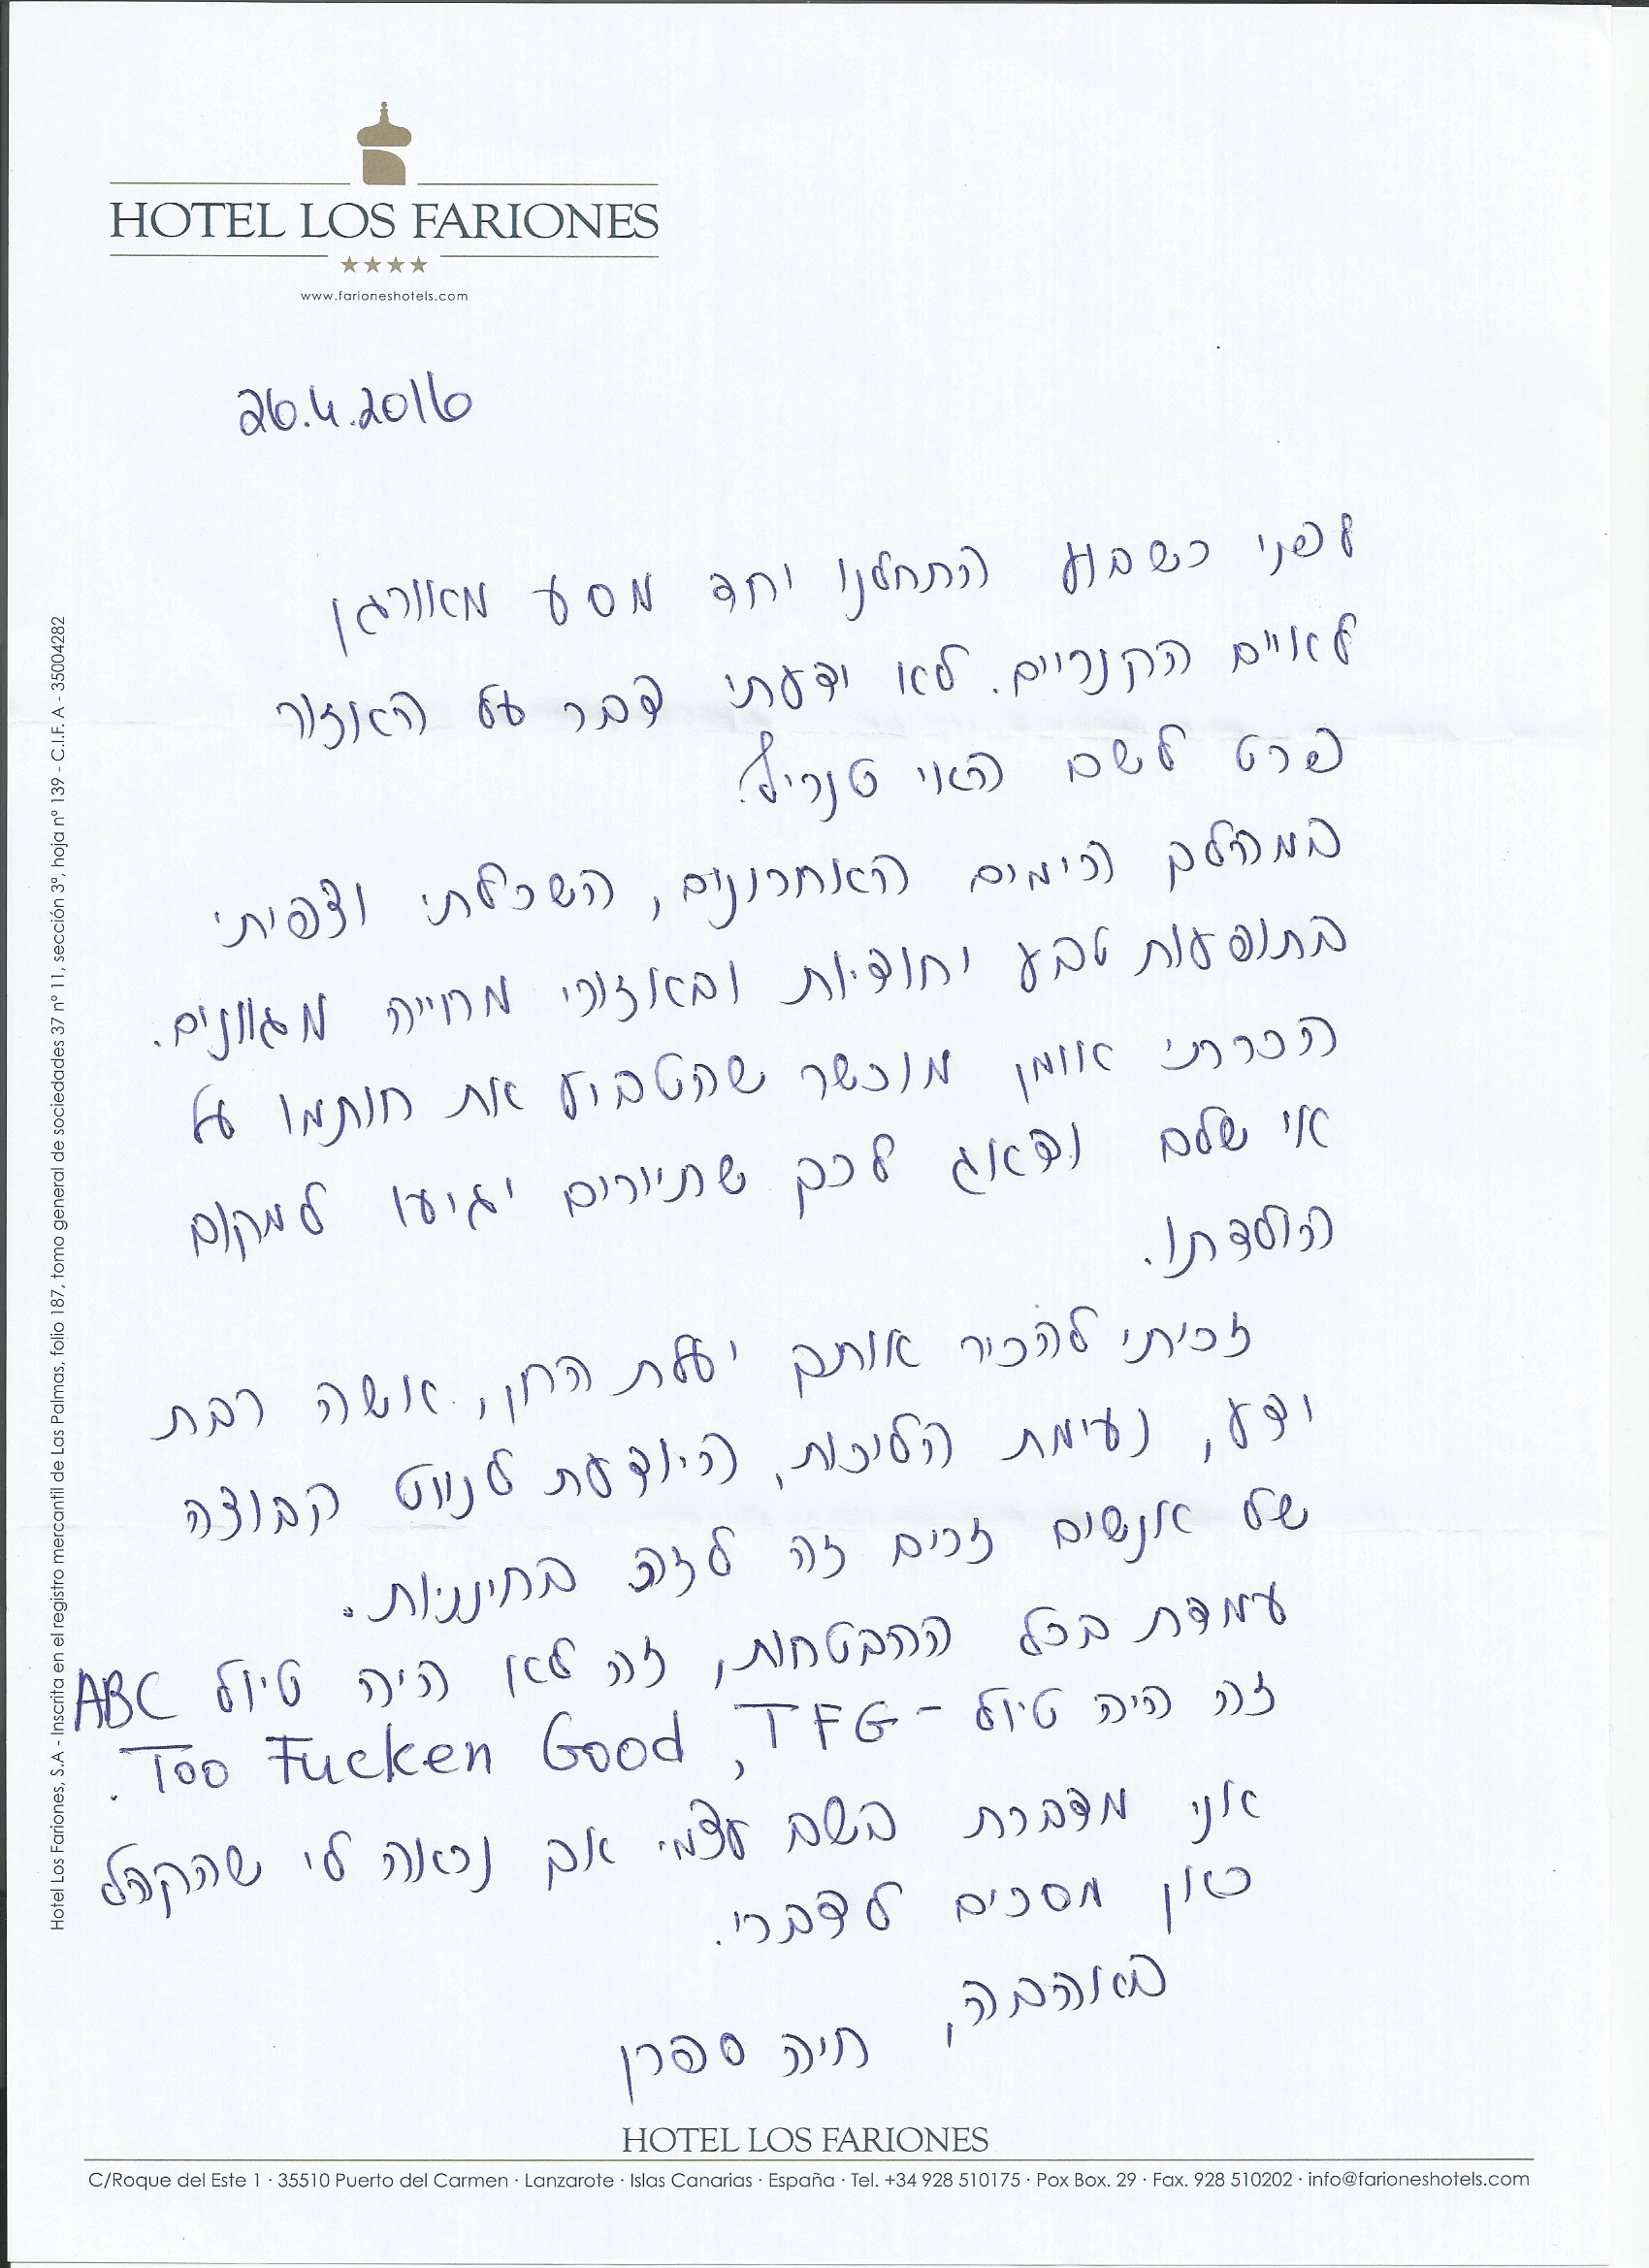 HOTEL LOS FARIONES
www.farioneshotels.com
26.4.2016
לפני כשבוע התחלנו יחד מסע מאורגן
לאיים הקנריים. לא ידעתי דבר על האזור
פרט לשם האי טנריף.
במהלך הימים האחרונים, השכלתי וצפיתי
בתופעות טבע יחודיות ובאזורי מחייה מגוונים.
הכרתי אומן מוכשר שהטביע את חותמו על
אי שלם ודאג לכך שתיירים יגיעו למקום
הולדתו.
זכיתי להכיר אותך יעלת החן, אשה רבת
ידע, נעימת הליכות, היודעת לנווט קבוצה
של אנשים זרים זה לזה בחינניות.
עמדת בכל ההבטחות, זה לא היה טיול ABC
זה היה טיול - TFG, Too Fucken Good.
אני מדברת בשם עצמי אך נראה לי שהקהל
כאן מסכים לדברי.
באהבה,
חיה ספרן
HOTEL LOS FARIONES
C/Roque del Este 1 · 35510 Puerto del Carmen · Lanzarote · Islas Canarias · España · Tel. +34 928 510175 · Pox Box. 29 · Fax. 928 510202 · info@farioneshotels.com
Hotel Los Fariones, S.A - Inscrita en el registro mercantil de Las Palmas, folio 187, tomo general de sociedades 37 nº 11, sección 3ª, hoja nº 139 - C.I.F. A - 35004282